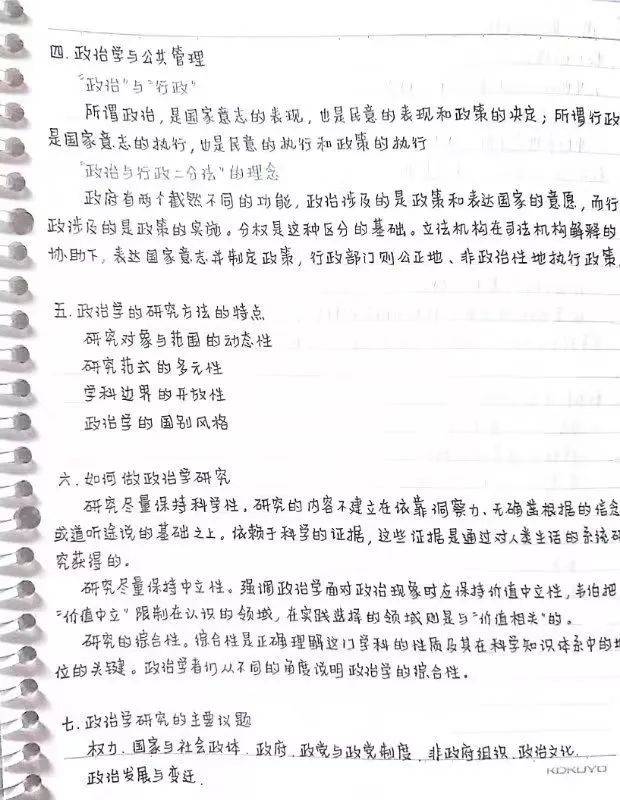 四.政治学与公共管理
"政治"与"行政"
所谓政治,是国家意志的表现,也是民意的表现和政策的决定;所谓行政
是国家意志的执行,也是民意的执行和政策的执行
"政治与行政二分法"的理念
政府有两个截然不同的功能,政治涉及的是政策和表达国家的意愿,而行
政涉及的是政策的实施。分权是这种区分的基础。立法机构在司法机构解释的
协助下,表达国家意志并制定政策,行政部门则公正地、非政治性地执行政策
五.政治学的研究方法的特点
研究对象与范围的动态性
研究范式的多元性
学科边界的开放性
政治学的国别风格
六.如何做政治学研究
研究尽量保持科学性。研究的内容不建立在依靠洞察力、无确凿根据的信念
或道听途说的基础之上。依赖于科学的证据,这些证据是通过对人类生活的系统研
究获得的。
研究尽量保持中立性。强调政治学面对政治现象时应保持价值中立性,韦伯把
"价值中立"限制在认识的领域,在实践选择的领域则是与"价值相关"的。
研究的综合性。综合性是正确理解这门学科的性质及其在科学知识体系中的地
位的关键。政治学者们从不同的角度说明政治学的综合性。
七.政治学研究的主要议题
权力.国家与社会政体.政府.政党与政党制度.非政府组织.政治文化.
政治发展与变迁.
KOKUYO